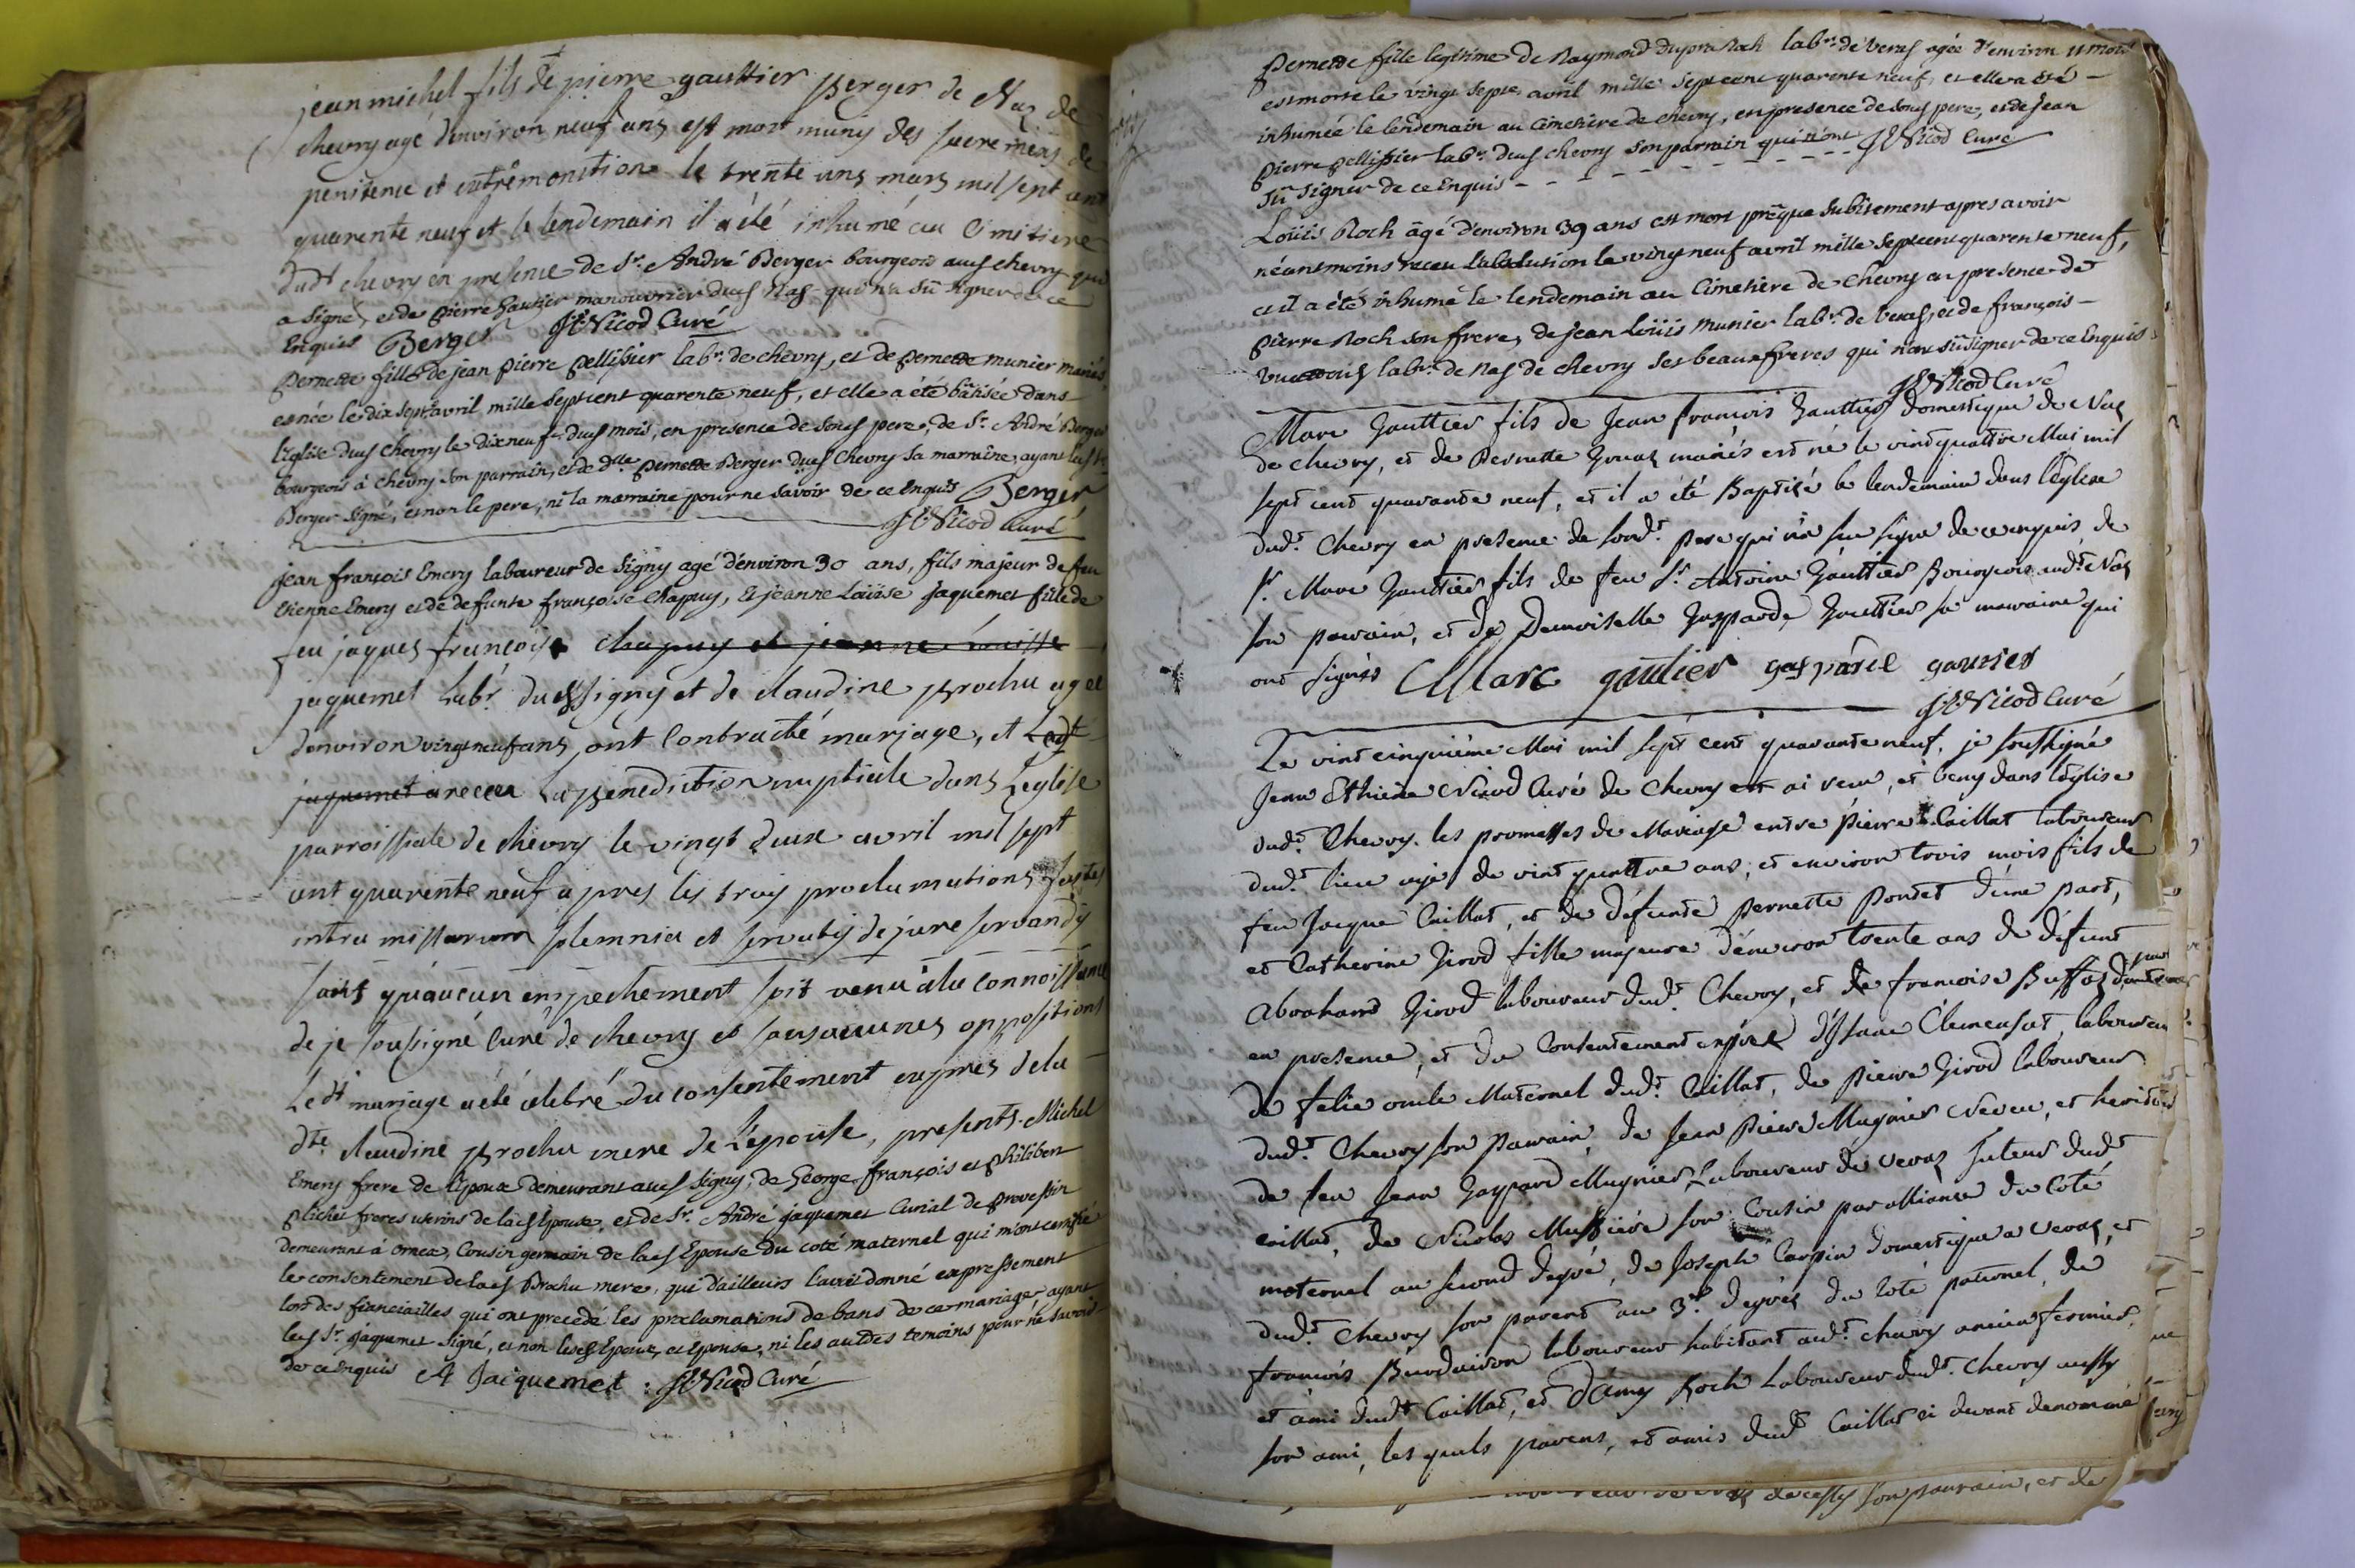 jean michel fils de pierre gaultier Berger de Naz de
chevry agé denviron neuf ans est mort munis des sacremens de
penitence et extremonition le trente uns mars mil sept cent
quarente neuf et le lendemain il a été inhumé au Cimitiere
dudt chevry en presence de Sr. André Berger bourgeois aud chevry qui
a signé, et de pierre Gautier manouvrier dud Nas qui n'a sû signer de ce
Enquis Berger JE Nicod Curé
Pernette fille de jean pierre pellissier labr. de chevry, et de pernette munier mariés
est née le dix sept avril mille sept cent quarente neuf, et elle a été bâtisée dans
l'eglise dud chevry le dixneuf dud mois, en presence de sond pere, de Sr. André Berger
bourgeois à chevry son parrain, et de dlle pernette Berger dud Chevry sa marraine, ayant led Sr
Berger signé, et non le pere, ni la marraine pour ne savoir de ce Enquis Berger
JE Nicod Curé
jean françois Emery laboureur de signy agé d'environ 30 ans, fils majeur de feu
Etienne Emery et de defunte françoise Chapuy, Et jeanne Loüise jaquemet fille de
feu jaques françois chapuy et jeanne louisse
jaquemet Labr. dud signy et de claudine Brochu agée
denviron vingt neuf ans, ont Contracté mariage, et Ledt
jaquemet a receu La Benediction nuptiale dans Leglise
parroissiale de chevry le vingt deux avril mil sept
cent quarente neuf apres les trois proclamations faites
intra missarum solemnia et servatis de jure servandis
sans qu'aucun empechement soit venu à la connoissance
de je sousigné Curé de chevry et sans aucunes oppositions
Ledt mariage a été celebré du consentement exprès de la
dte. claudine Brochu mere de L'epouse, presents Michel
Emery frere de l'Epoux demeurant aud signy, de George françois et philibert
plichet freres uterins de lad Epouse, et de Sr. André jaquemet Curial de provessin
demeurant à ornex, Cousin germain de lad Epouse du coté maternel qui m'ont certifié
le consentement de lad Brochu mere, qui d'ailleurs l'avoit donné expressement
lors des fianciailles qui ont precedé les proclamations de bans de ce mariage, ayant
led Sr. jaquemet signé, et non lesd Epoux, et Epouse, ni les autres temoins pour ne savoir
de ce Enquis A Jacquemet JE Nicod Curé
Pernette fille legitime de Raymond Roch labr. de veraz agée d'environ 11 mois
est morte le vingt sept avril mille sept cent quarente neuf, et elle a été
inhumée le lendemain au Cimetière de chevry, en presence de sond pere, et de jean
pierre pellissier labr. dud chevry son parrain qui n'ont
sû signer de ce Enquis JE Nicod Curé
Loüis Roch âgé d'environ 39 ans est mort prêque subitement apres avoir
néantmoins receu l'absolution le vingt neuf avril mille sept cent quarente neuf,
et il a été inhumé le lendemain au Cimetière de Chevry en presence de
pierre Roch son frere, de jean loüis munier labr. de veraz, et de françois
labr. de Nas de chevry ses beaux freres qui n'ont sû signer de ce Enquis
JE Nicod Curé
Marc Gaultier fils de Jean françois Gaultier domestique de Naz
de chevry, et de Pernette mariés est né le vint quattre Mai mil
sept cent quarante neuf, et il a été Baptisé le lendemain dans l'Eglise
dudt. Chevry en presence de sondt. Pere qui n'a su signer de ce enquis, de
Sr. Marc Gaultier fils de feu Sr. Antoine Gaultier Bourgeois audt. Naz
son parrain, et de Demoiselle Gasparde Gaultier sa marraine qui
ont signés Marc gautier gasparde gautier
JE Nicod Curé
Le vint cinquième Mai mil sept cent quarante neuf, je soussigné
Jean Ethiene Nicod Curé de Chevry ai reçu, et beny dans l'Eglise
dudt. Chevry les promesses de Mariage entre pierre Caillat laboureur
dudt. lieu agé de vint quattre ans, et environ trois mois fils de
feu Jacque Caillat, et de défunte Pernette Pontet d'une part,
et Catherine Girod fille majeure d'environ trente ans de défunt
Abraham Girod laboureur dudt. Chevry, et de francoise Buffaz d'autre part
en presence, et du Consentement exprès d'Isaac Clemensot, laboureur
de felie oncle Maternel dudt. Caillat, de Pierre Girod laboureur
dudt. Chevry son Parrain, de Jean Pierre Mugnier Neveu, et heritier
de feu Jean Gaspard Mugnier Laboureur de Veraz Tuteur dudt
Caillat, de Nicolas Mussiere son Cousin par alliance du Coté
maternel au second degré, de Joseph Carpin domestique a Veraz, et
dudt. Chevry son parent au 3e. degrés du coté paternel, de
francois Burdairon laboureur habitant audt. chevry ancien fermier
et ami dudt Caillat, et d'Amy Roch Laboureur dudt. Chevry aussy
son ami, les quels parens, et amis dudt Caillat ci devant denommé
son parrain, et de